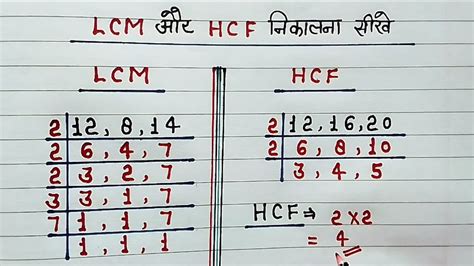 LCM और HCF निकालना सीखे
LCM
2 | 12, 8, 14
2 | 6, 4, 7
2 | 3, 2, 7
3 | 3, 1, 7
7 | 1, 1, 7
1, 1, 1
HCF
2 | 12, 16, 20
2 | 6, 8, 10
3, 4, 5
HCF → 2×2
= 4